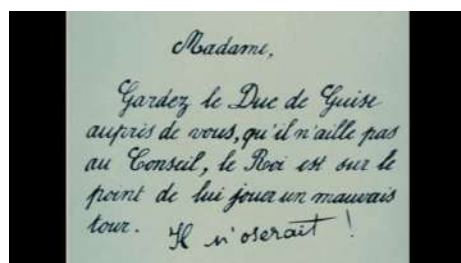 Madame,
Gardez le Duc de Guise
auprès de vous, qu'il n'aille pas
au Conseil, le Roi est sur le
point de lui jouer un mauvais
tour. Il n'oserait !